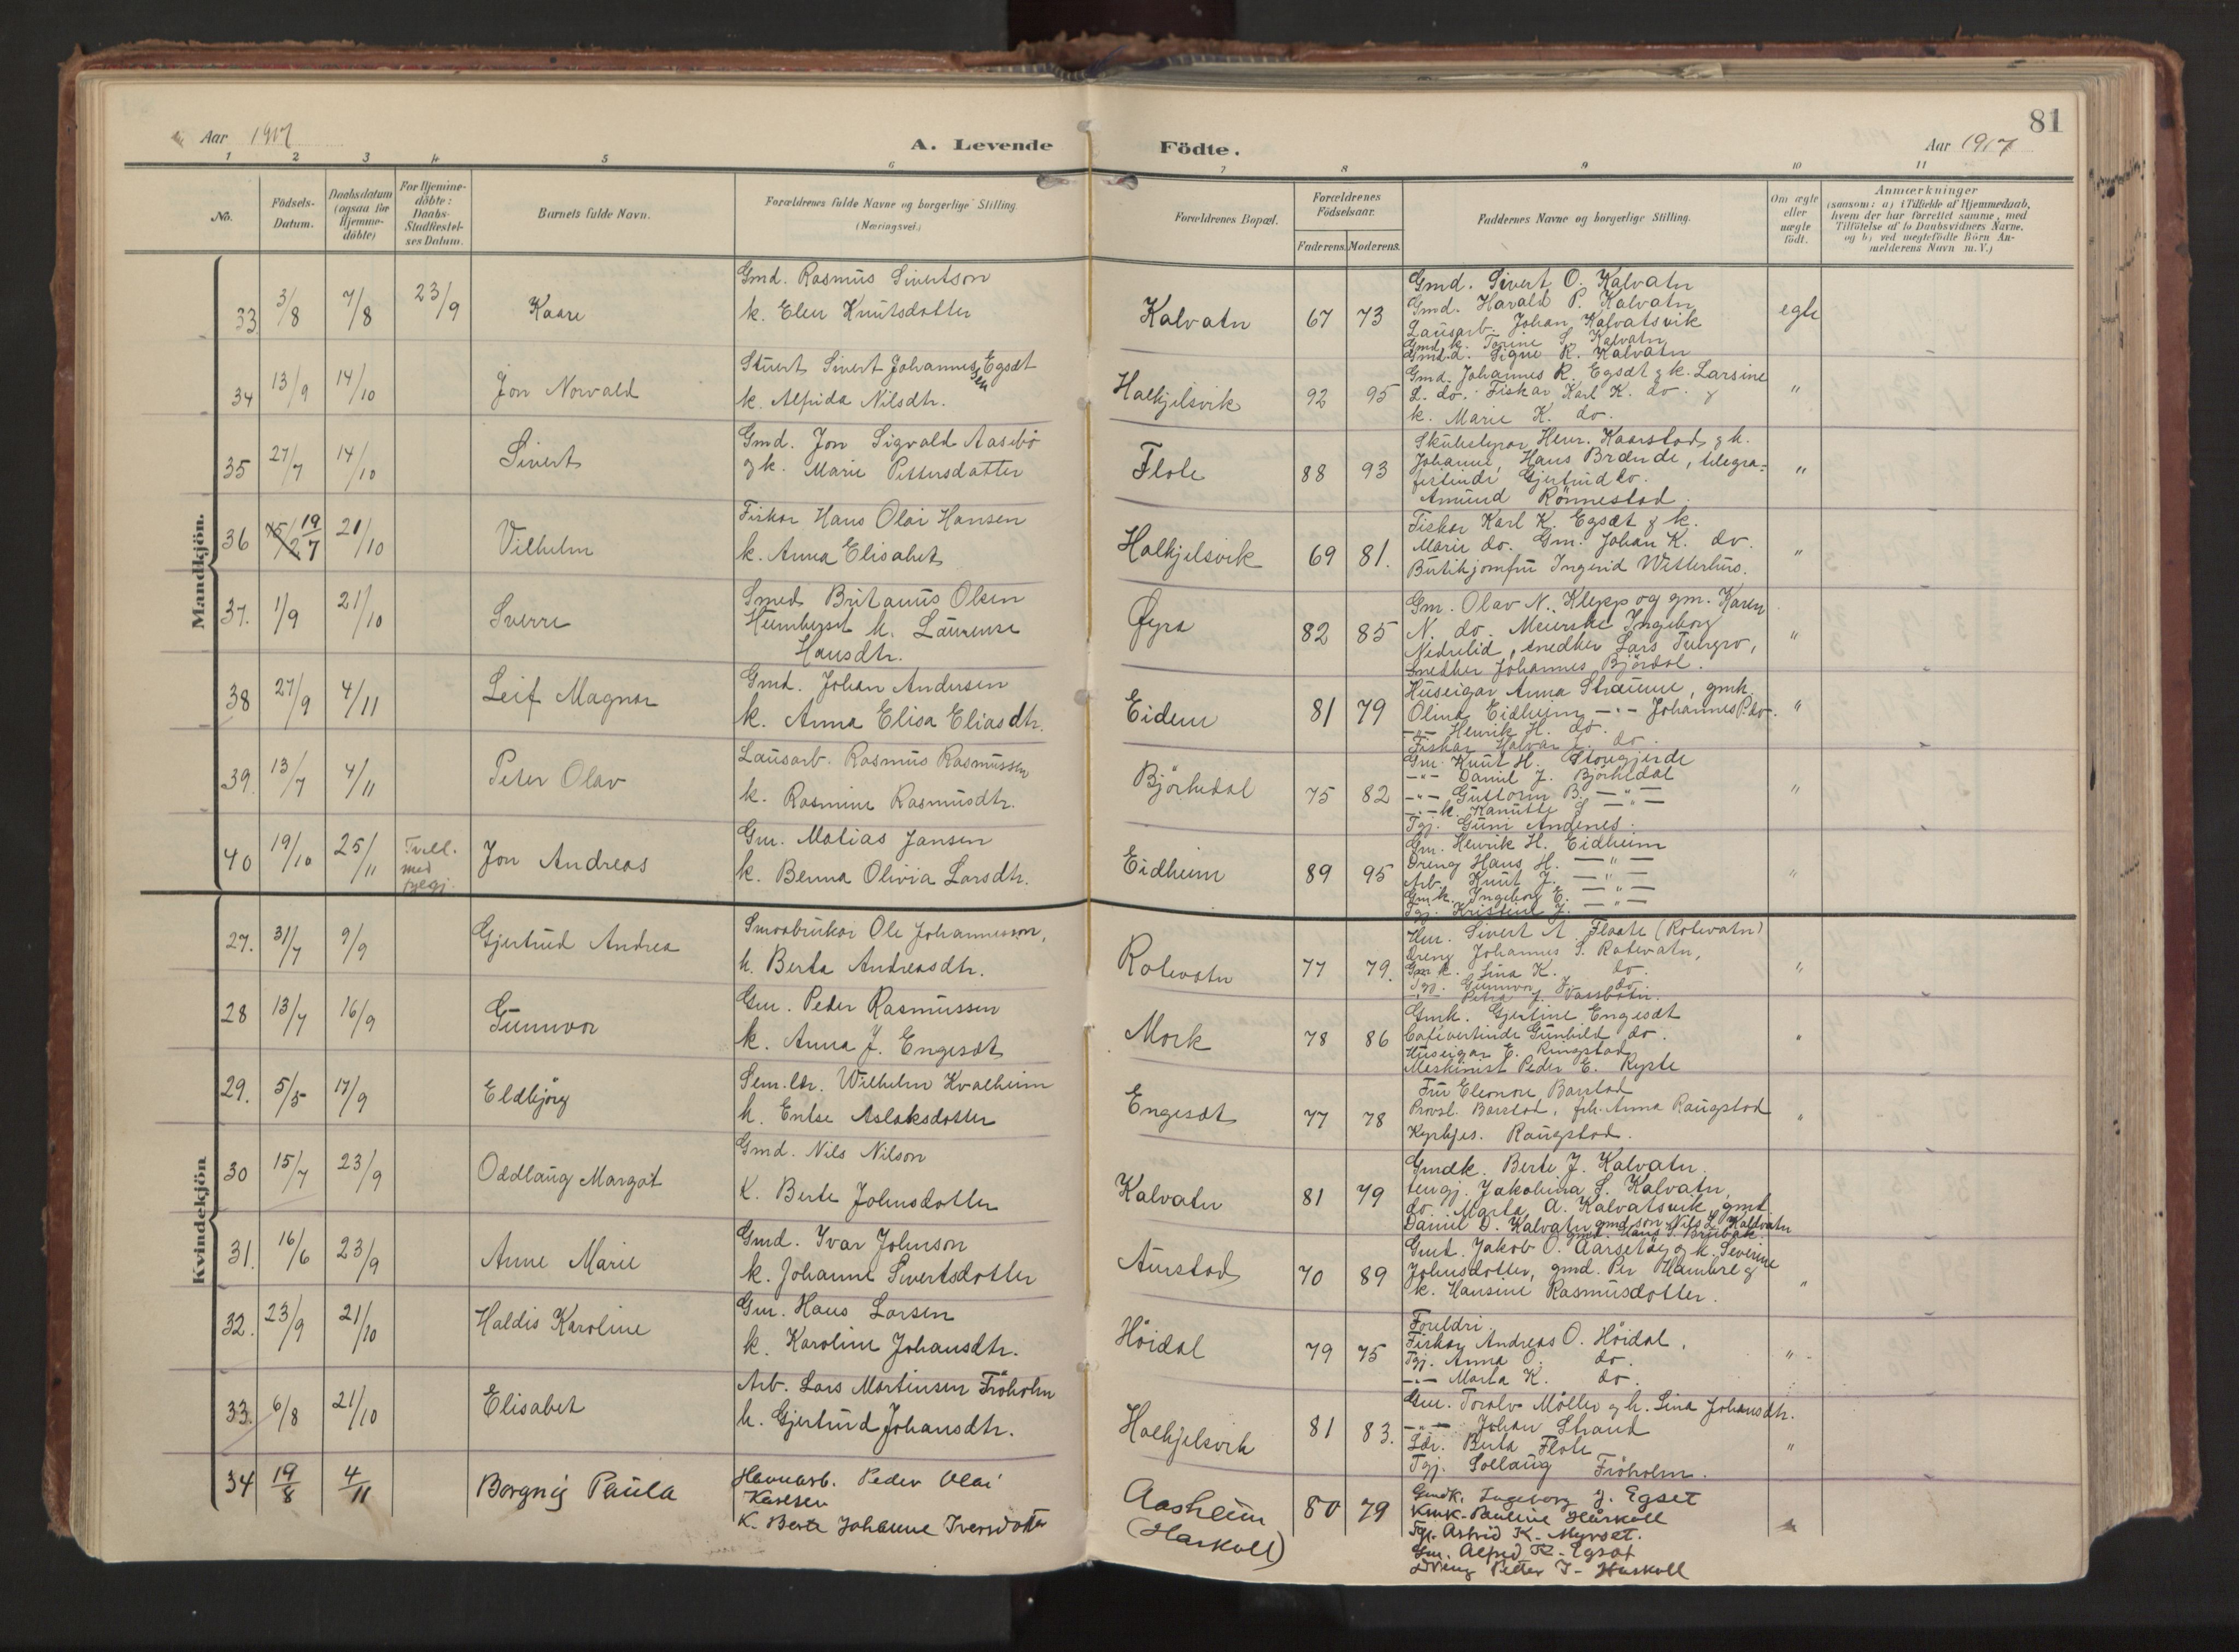 81
Aar 1917
A. Levende Födte.
Aar 1917
1 2 3 4 5 6 7 8 9 10 11
No.
Födsels-Datum.
Daabsdatum (ogsaa for Hjemme-döbte)
For Hjemme-döbte: Daabs-Stadfæstel-ses Datum.
Barnets fulde Navn.
Forældrenes fulde Navne og borgerlige Stilling. (Næringsvei.)
Forældrenes Bopæl.
Forældrenes Födselsaar.
Faderens. Moderens.
Faddernes Navne og borgerlige Stilling.
Om ægte eller uægte födt.
Anmærkninger
(saasom: a) i Tilfælde af Hjemmedaab,
hvem der har forrettet samme, med
Tilföielse af to Daabsvidners Navne,
og b) ved uægtefödte Börn An-
melderens Navn m. V.)
Mandkjön.
33 3/8 7/8 23/9 Kaare
Gmd. Rasmus Sivertson
k. Elen Knutsdotter
Kalvatn 67 73
Gmd. Sivert O. Kalvatn
Gmd. Harald P. Kalvatn
Lausarb. Johan Kalvatsvik
Gmd.k. Torine S. Kalvatn
Gmd.d. Signe R. Kalvatn
egte
34 13/9 14/10 Jon Norvald
Stuert Sivert Johannessen Egsæt
k. Alfida Nilsdtr.
Halkjelsvik 92 95
Gmd. Johannes R. Egsæt & k. Larsine
L. do. Fiskar Karl K. do. &
k. Marie K. do.
"
35 27/7 14/10 Sivert
Gmd. Jon Sigvald Aasebö
& k. Marie Pettersdatter
Flote 88 93
Skulestyrar Henr. Kaarstad & k.
Johanne, Hans Brænde, telegra-
fistinde Gjertrud do.
Amund Rönnestad.
"
36 19/7 21/10 Vilhelm
Fiskar Hans Olai Hansen
k. Anna Elisabet
Halkjelsvik 69 81.
Fiskar Karl K. Egsæt & k.
Marie do. Gm. Johan K. do.
Butikjomfru Ingerid Wetterhus.
"
37. 1/9 21/10 Sverre
Smed Britanus Olsen
Humberset k. Laurense
Hansdtr.
Öyra 82 85
Gm. Olav N. Klepp og gm. Karen
N. do. Meierske Ingeborg
Nedrelid, snedker Lars
Snedker Johannes Björdal.
"
38 27/9 4/11 Leif Magnar
Gmd. Johan Andersen
k. Anna Elisa Eliasdtr.
Eidem 81 79
Huseigar Anna Straume, gmk.
Olina Eidheim, -"- Johannes P. do.
-"- Henrik H. do.
Fiskar Halvar L. do.
"
39. 13/7 4/11 Peter Olav
Lausarb. Rasmus Rasmussen
k. Rasmine Rasmusdtr.
Björkedal 75 82
Gm. Knut H. Stougjerde
-"- Daniel J. Björkedal
-"- Guttorm B. -"-
-"- k. Kanutte S -"-
Tgj. Guni Andenes.
"
40 19/10 25/11 Tvill. med
Jon Andreas
Gm. Matias Jansen
k. Benna Olivia Larsdtr.
Eidheim 89 95
Gm. Henrik H. Eidheim
Dreng Hans H. -"-
Arb. Knut J. -"-
Gm.k. Ingeborg E. -"-
Tgj. Kristine J. -"-
"
Kvindekjön
27. 31/7 9/9 Gjertrud Andrea
Smaabrukar Ole Johannesson,
k. Berta Andreasdtr.
Rotevatn 77 79.
Gm. Sivert A Flaate (Rotevatn)
Dreng Johannes S. Rotevatn,
Gm k. Lina K. do.
Tgj. Gunnvor J. do.
-"- Petra J. Vassbotn.
"
28 13/7 16/9 Gunnvor
Gm. Peder Rasmussen
k. Anna J. Engesæt
Mork 78 86
Gmk. Gjertine Engesæt
Cafévertinde Gunhild do.
Huseigar E. Ringstad
Maskinist Peder E. Ryste
"
29. 5/5 17/9 Eldbjörg
Sem.lær. Wilhelm Kvalheim
k. Entse Aslaksdotter
Engesæt 77 78
Fru Eleonore Barstad
Provst. Barstad, frk. Anna Raugstad
Raugstad.
"
30 15/7 23/9 Oddlaug Margot
Gmd. Nils Nilson
K. Berte Johnsdotter
Kalvatn 81 79
Gmdk. Berte J. Kalvatn.
tengj. Jakobina S. Kalvatn,
do Marta A. Kalvatsvik, gmd.
Daniel D. Kalvatn gmd.son Nils L. Kalvatn
gmd. Hans S. Breibak.
31. 16/6 23/9 Anne Marie
Gmd. Ivar Johnson
k. Johanne Sivertsdotter
Aurstad 70 89
Gmd. Jakob O. Aarsetöy & k. Severine
Johnsdotter, gmd. Per Hambre &
k. Hansine Rasmusdotter.
"
32. 23/9 21/10 Haldis Karoline
Gm. Hans Larsen
k. Karoline Johansdtr.
Höidal 79 75
Foreldri.
Fiskar Andreas O. Höidal.
Tgj. Anna O. do.
-"- Marta K. do.
"
33. 6/8 21/10 Elisabet
Arb. Lars Martinsen Fröholm
k. Gjertrud Johansdtr.
Halkjelsvik 81 83.
Gm. Toralv Möller & k. Lina Johansdtr.
-"- Johan Strand
Lær. Berta Flote
Tgj. Sollaug Fröholm.
"
34 19/8 4/11 Borgny Paula
Havnarb. Peder Olai
Karlsen
K. Berte Johanne Iversdotter
Aasheim
(Haskoll) 80 79
Gmdk. Ingeborg J. Egset
Kmk. Pauline Huskoll
Tgj. Astrid K. Myrset.
Gm. Alfred R. Egsæt
Dreng Petter J. Huskoll